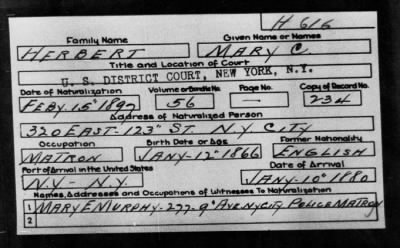 H 616
Family Name Given Name or Names
HERBERT MARY C.
Title and Location of Court
U. S. DISTRICT COURT, NEW YORK, N.Y.
Date of Naturalization Volume or Bundle No. Page No. Copy of Record No.
FEBY-15-1897 56 — 234
Address of Naturalized Person
320 EAST-123 ST. N.Y. CITY
Occupation Birth Date or Age Former Nationality
MATRON JANY-12-1866 ENGLISH
Port of Arrival in the United States Date of Arrival
N.Y.-N.Y. JANY-10-1880
Names, Addresses and Occupations of Witnesses To Naturalization
1 MARY E MURPHY-277-9 AVE NYCITY POLICE MATRON
2